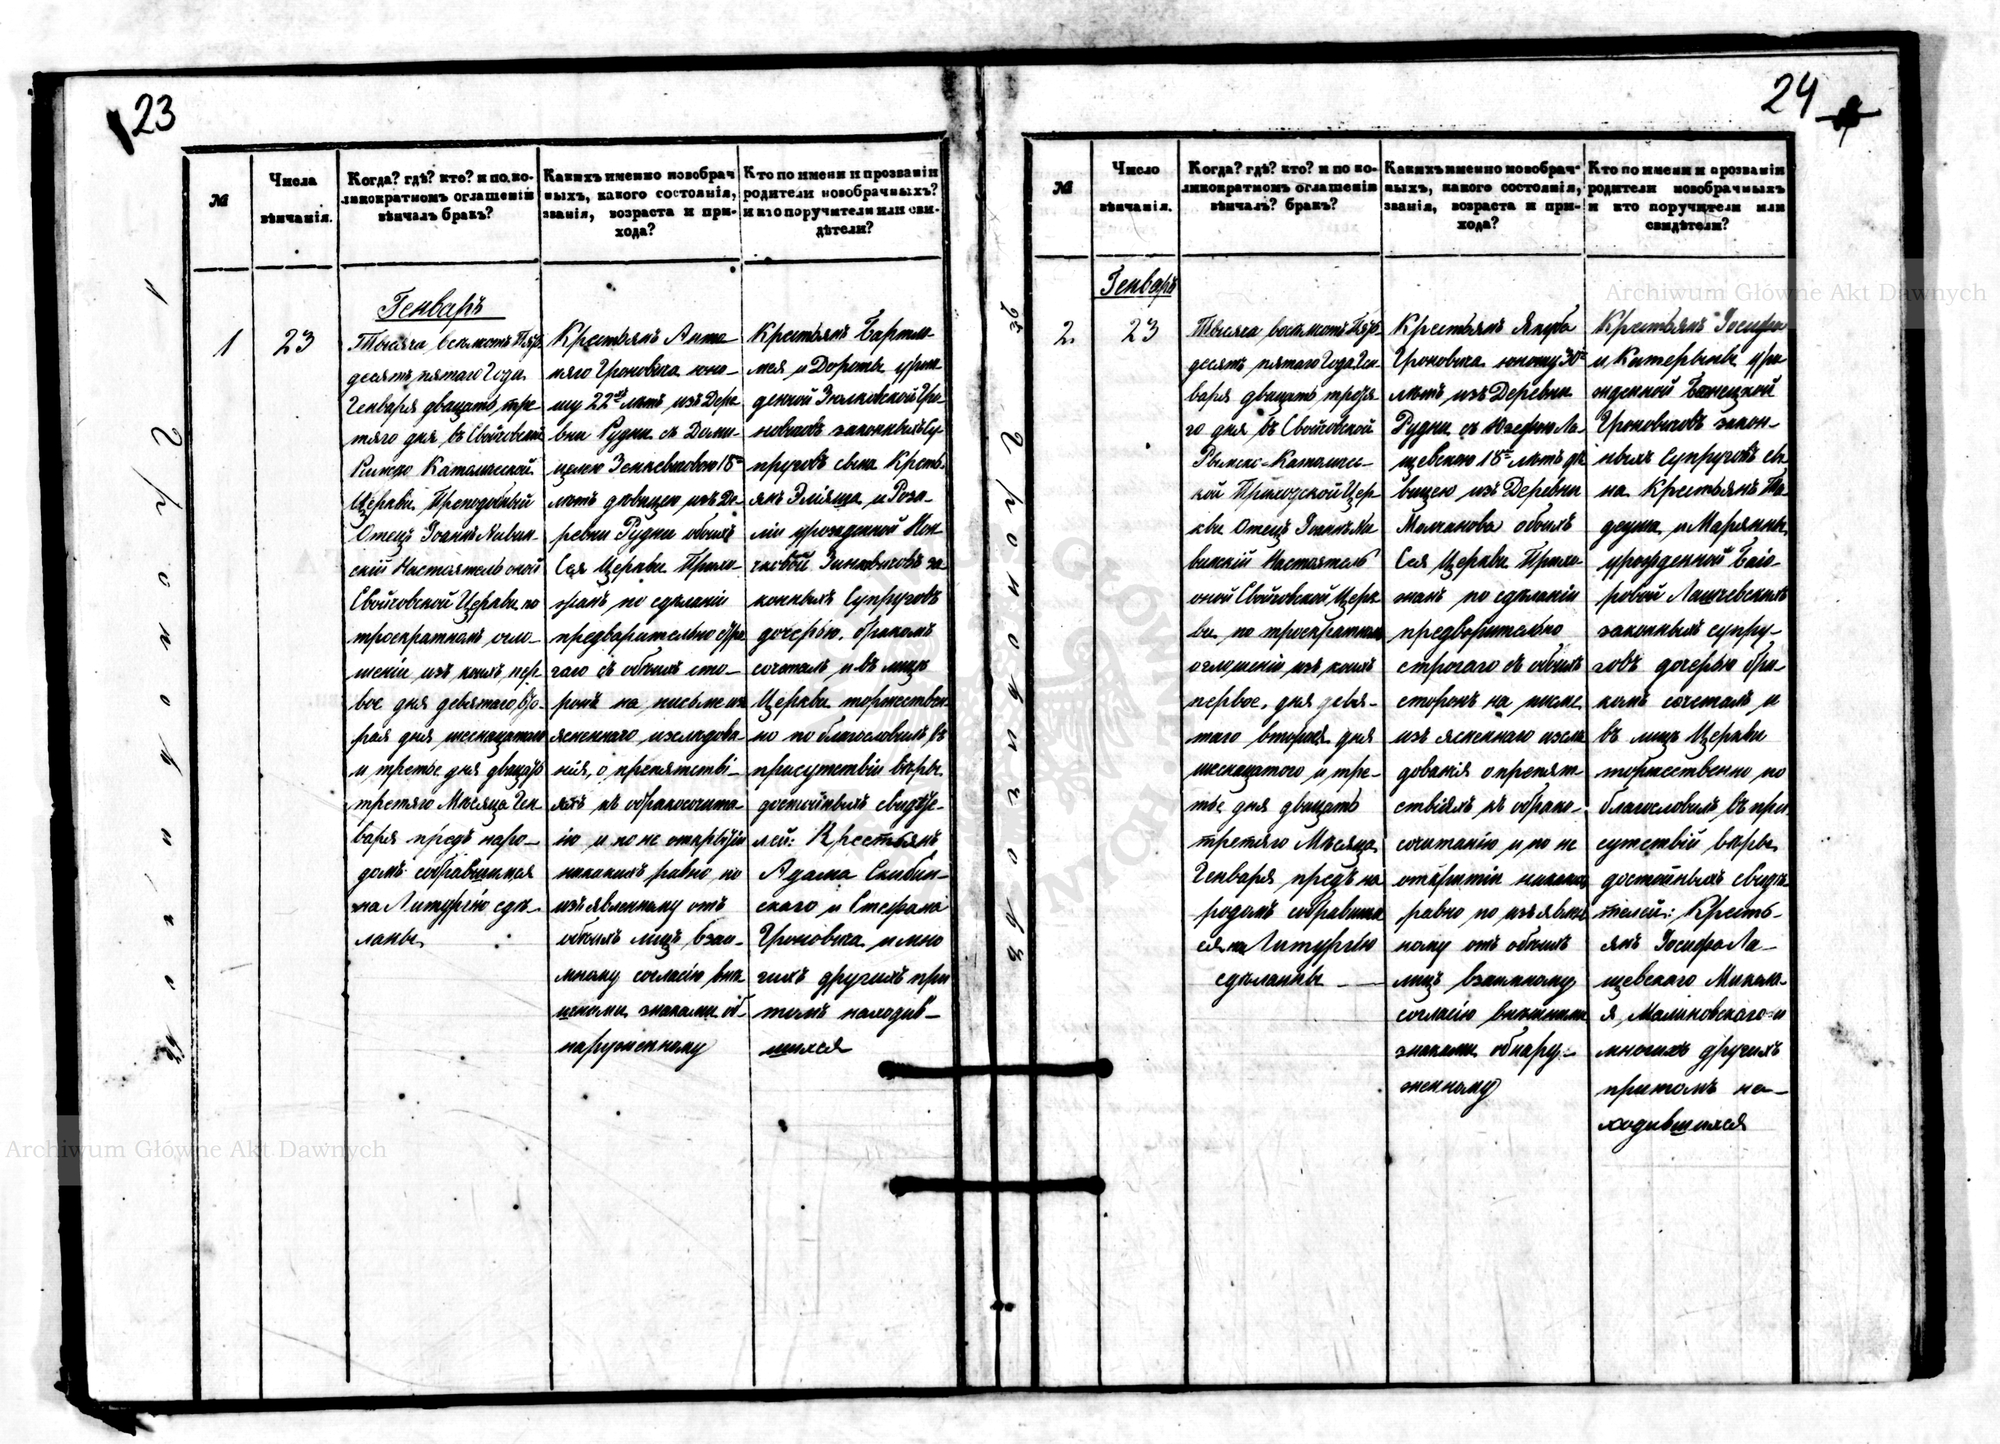 23
№
Числа
вѣнчанія.
Когда? гдѣ? кто? и по ко-
ликократномъ оглашеніи
вѣнчалъ бракъ?
Какихъ именно новобрач
ныхъ, какого состоянія,
званія, возраста и при-
хода?
Кто по имени и прозваніи
родители новобрачныхъ?
и кто поручители или сви-
дѣтели?
1
23
Генварь
Тысяча восмсотъ
десятъ пятаго Года
Генваря двацать тре
тяго дня въ Свойговской
Римско Католической
Церкви Преподобный
Отецъ Іоаннъ
скій Настоятель оной
Свойговской Церкви по
троекратномъ огло-
шеніи изъ коихъ пер
вое дня девятаго вто-
рая дня шеснацатаго
и третье дня двацать
третяго Мѣсяца Ген
варя предъ наро-
домъ собравшимся
на Литургію сдѣ-
ланы
Крестьянъ Анто
няго Гроновича юно-
шу 22 лѣтъ изъ Дере
вни Рудни съ Доми-
целею Зенкевичовою 18
лѣтъ дѣвицею изъ Де-
ревни Рудни обоихъ
Сея Церкви Прихо-
жанъ по сдѣланіи
предварительно стро
гаго съ обоихъ сто-
ронъ на письмѣ из
ясненнаго изслѣдова-
нія, о препятстві-
яхъ къ обракосочита-
ію и по не открытіи
никакихъ равно по
изъявленному отъ
обоихъ лицъ взаи-
мному согласію вна
шними знаками об-
наруженному
Крестьянъ Бартло-
мея и Дороты урож
денной Зюлковской Гро
новичовъ законныхъ Су-
пруговъ сына Кресть
янъ Эліяша и Роза-
ліи урожденной Кон
чковой Зинкевичовъ за
конныхъ Супруговъ
дочерью, бракомъ
сочеталъ и въ лицѣ
Церкви торжествен-
но по благословилъ въ
присутствіи вѣры
достойныхъ свидѣте-
лей: Крестьянъ
Адама Скибин-
скаго и Стефана
Гроновича и мно
гихъ другихъ при
томъ находив-
шихся
1 Гроновичъ
24
№
Число
вѣнчанія.
Когда? гдѣ? кто? и по ко-
ликократномъ оглашеніи
вѣнчалъ? бракъ?
Какихъ именно новобрач-
ныхъ, какого состоянія,
званія, возраста и при-
хода?
Кто по имени и прозваніи
родители новобрачныхъ
и кто поручители или
свидѣтели?
2.
Генваръ
23
Тысяча восмсотъ
десятъ пятаго Года Ген-
варя двацать третя
го дня въ Свойговской
Рымско-Католичес-
кой Приходской Цер
кви Отецъ Іоаннъ
Настоятель
оной Свойговской Церк
ви по троекратномъ
оглошеніи изъ коихъ
первое, дня девя-
таго вторая дня
шеснацатаго и тре-
тье дня двацать
третяго Мѣсяца
Генваря предъ на
родомъ собравшим
ся на Литургію
сдѣланы
Крестьянъ Якуба
Гроновича юношу 30
лѣтъ изъ Деревни
Рудни съ Юзефою Ла
щевскою 18 лѣтъ дѣ
вицею изъ Деревни
Молчанова обоихъ
Сея Церкви Прихо
жанъ по сдѣланіи
предворительно
строгаго съ обоихъ
сторонъ на писме
изъ ясненнаго изслѣ
дованія о препят
ствіяхъ къ обрако-
сочитанію и по не
открытіи никаких
равно по изъявлен
ному отъ обоихъ
лицъ взаимному
согласію внѣшними
знаками обнару-
женному
Крестьянъ Іосифа
и Катерыны уро
жденной Банецкой
Гроновичовъ закон-
ныхъ Супруговъ сы
на Крестьянъ Та
деуша и Марянны
урожденной Баго-
ровой Лащевскихъ
законныхъ супру-
говъ дочерью бра
комъ сочеталъ и
въ лицѣ Церкви
торжественно по
благословилъ въ при
сутствіи вѣры
достойныхъ свидѣ
телей: Кресть-
янъ Іосифа Ла-
щевскаго Микола-
я Малиновскаго и
многихъ другихъ
притомъ на-
ходившихся
Archiwum Główne Akt Dawnych
Archiwum Główne Akt Dawnych